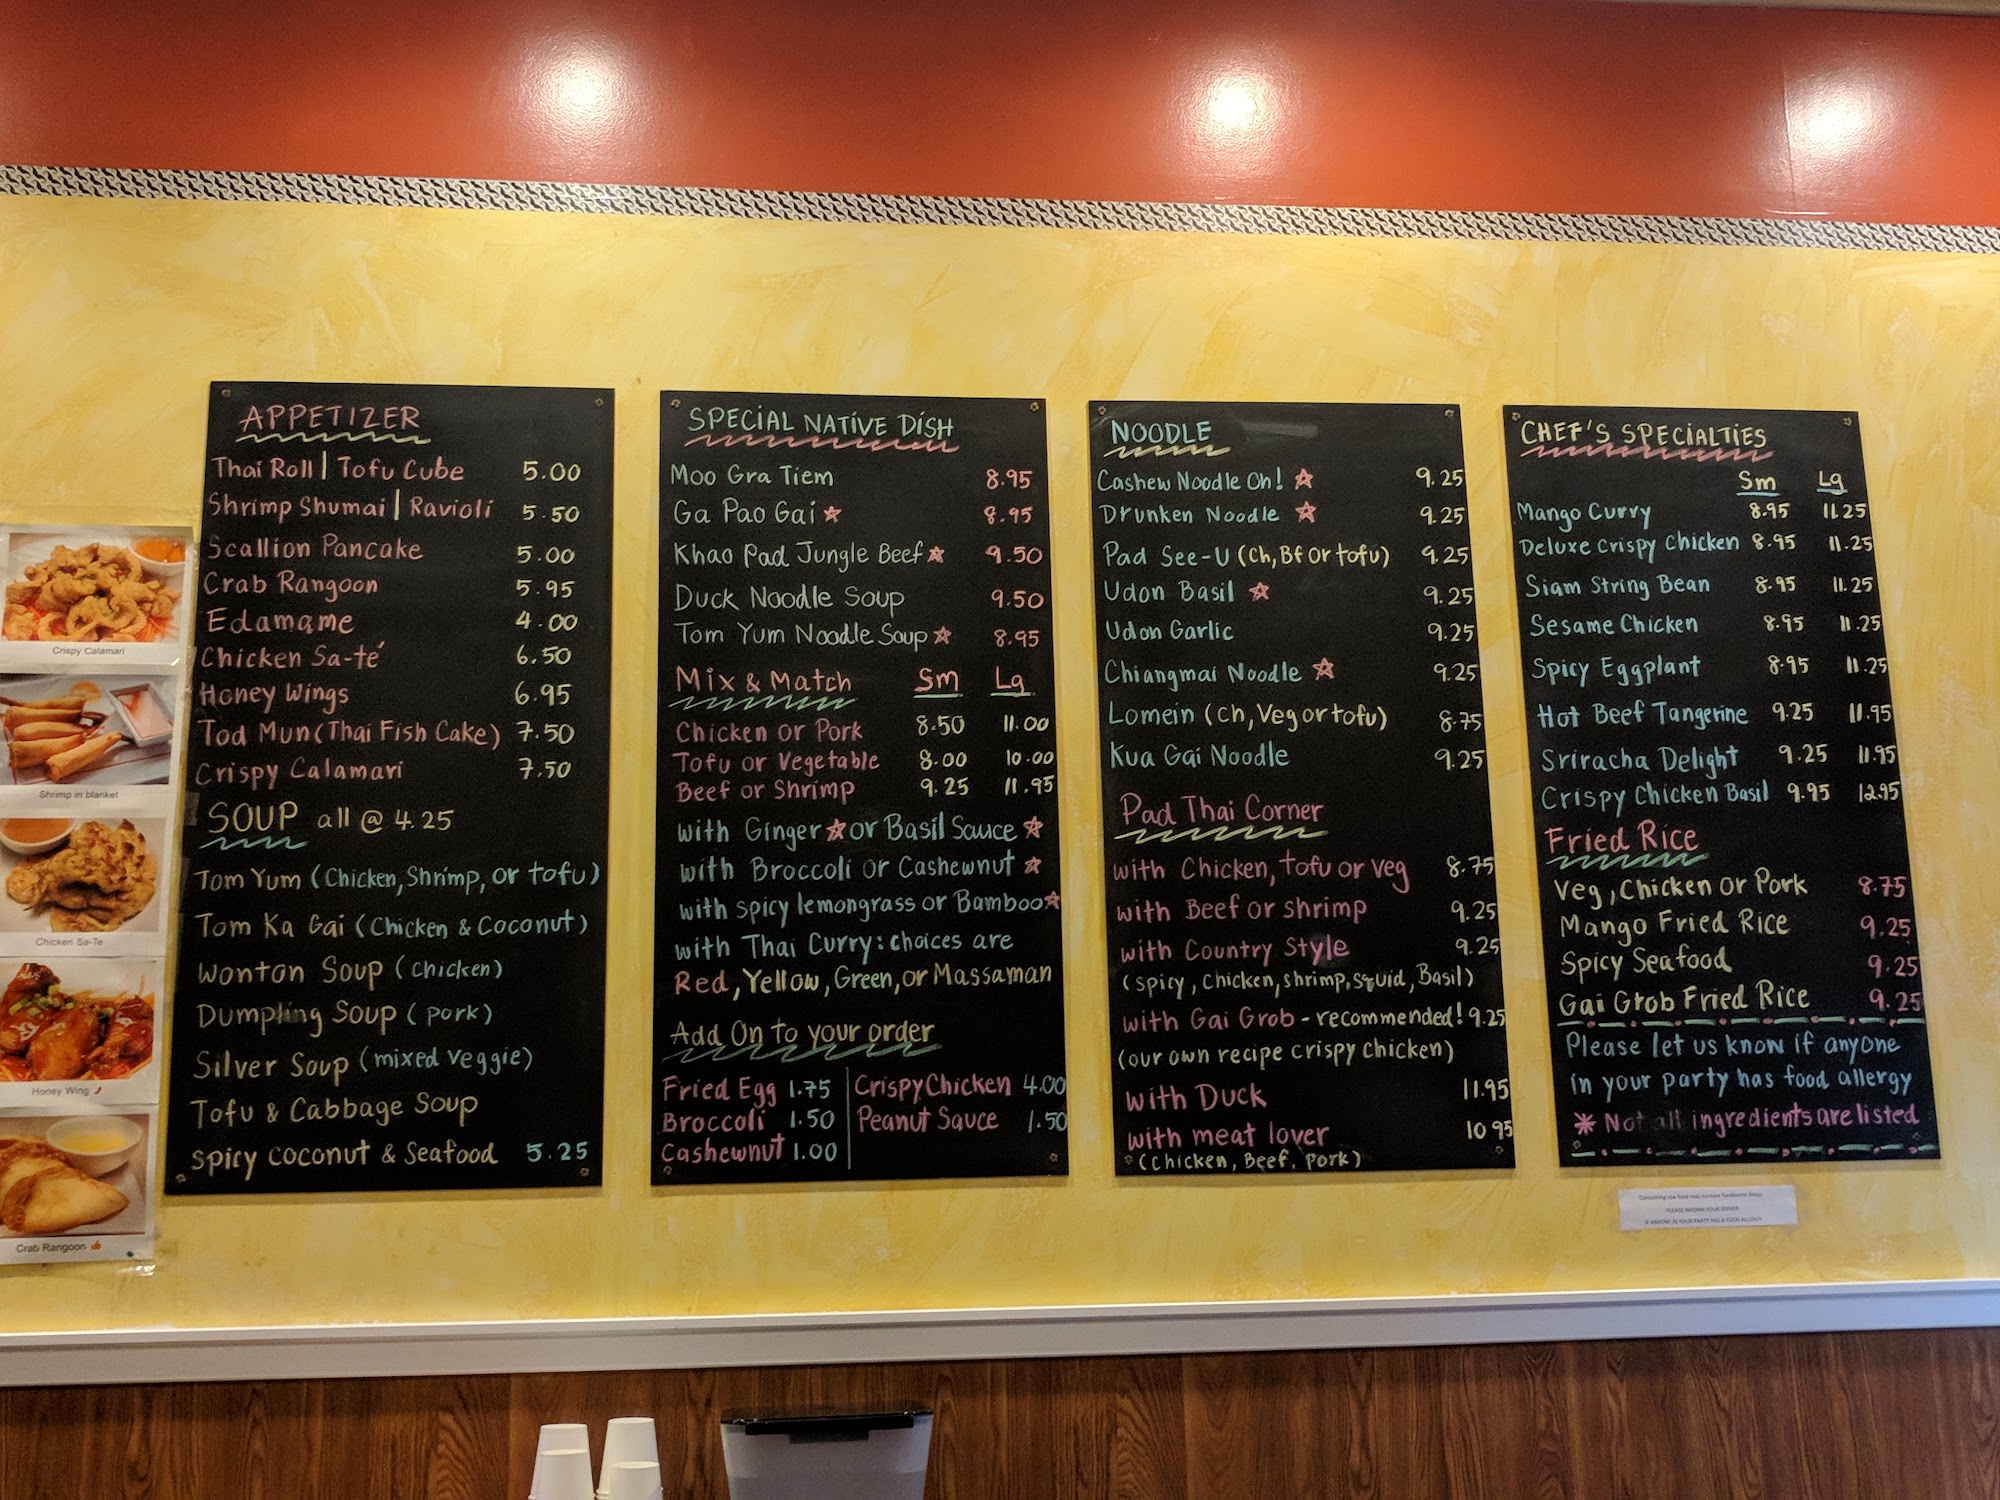 Crispy Calamari
Shrimp in blanket
Chicken Sa-Te
Honey Wing
Crab Rangoon
APPETIZER
Thai Roll | Tofu Cube 5.00
Shrimp Shumai | Ravioli 5.50
Scallion Pancake 5.00
Crab Rangoon 5.95
Edamame 4.00
Chicken Sa-té 6.50
Honey Wings 6.95
Tod Mun (Thai Fish Cake) 7.50
Crispy Calamari 7.50
SOUP all @ 4.25
Tom Yum (Chicken, Shrimp, or tofu)
Tom Ka Gai (Chicken & Coconut)
Wonton Soup (chicken)
Dumpling Soup (pork)
Silver Soup (mixed veggie)
Tofu & Cabbage Soup
Spicy coconut & Seafood 5.25
SPECIAL NATIVE DISH
Moo Gra Tiem 8.95
Ga Pao Gai ☆ 8.95
Khao Pad Jungle Beef ☆ 9.50
Duck Noodle Soup 9.50
Tom Yum Noodle Soup ☆ 8.95
Mix & Match Sm Lg
Chicken or Pork 8.50 11.00
Tofu or Vegetable 8.00 10.00
Beef or Shrimp 9.25 11.95
with Ginger ☆ or Basil Sauce ☆
with Broccoli or Cashewnut ☆
with spicy lemongrass or Bamboo ☆
with Thai Curry: choices are
Red, Yellow, Green, or Massaman
Add On to your order
Fried Egg 1.75 | Crispy Chicken 4.00
Broccoli 1.50 | Peanut Sauce 1.50
Cashewnut 1.00
NOODLE
Cashew Noodle Oh! ☆ 9.25
Drunken Noodle ☆ 9.25
Pad See-U (Ch, Bf or tofu) 9.25
Udon Basil ☆ 9.25
Udon Garlic 9.25
Chiangmai Noodle ☆ 9.25
Lomein (Ch, Veg or tofu) 8.75
Kua Gai Noodle 9.25
Pad Thai Corner
with Chicken, tofu or veg 8.75
with Beef or shrimp 9.25
with Country Style 9.25
(spicy, chicken, shrimp, squid, Basil)
with Gai Grob - recommended! 9.25
(our own recipe crispy chicken)
with Duck 11.95
with meat lover 10.95
(chicken, Beef, pork)
CHEF'S SPECIALTIES
Sm Lg
Mango Curry 8.95 11.25
Deluxe Crispy Chicken 8.95 11.25
Siam String Bean 8.95 11.25
Sesame Chicken 8.95 11.25
Spicy Eggplant 8.95 11.25
Hot Beef Tangerine 9.25 11.95
Sriracha Delight 9.25 11.95
Crispy Chicken Basil 9.95 12.95
Fried Rice
Veg, Chicken or Pork 8.75
Mango Fried Rice 9.25
Spicy Seafood 9.25
Gai Grob Fried Rice 9.25
Please let us know if anyone
in your party has food allergy
* Not all ingredients are listed
PLEASE INFORM YOUR SERVER
IF ANYONE IN YOUR PARTY HAS A FOOD ALLERGY